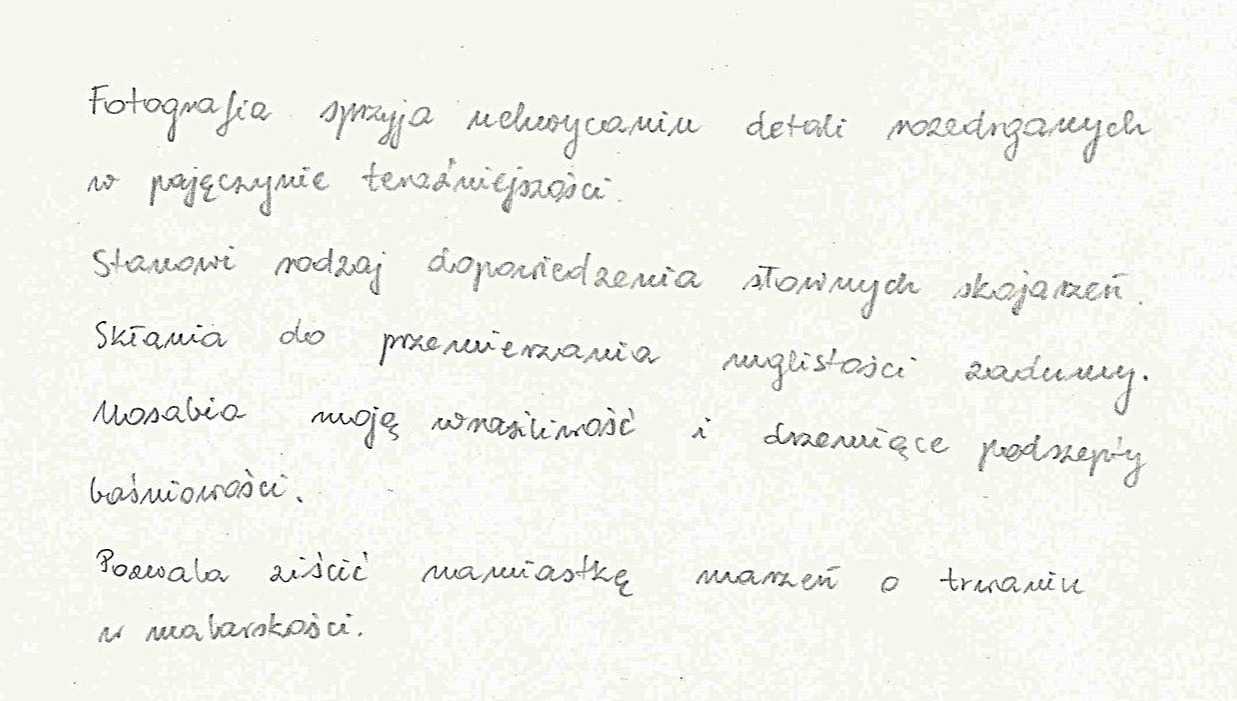 Fotografia sprzyja uchwycaniu detali rozedrganych
w pajęczynie teraźniejszości.
Stanowi rodzaj dopowiedzenia słownych skojarzeń.
Skłania do przemierzania mglistości zadumy.
Uosabia moją wrażliwość i drzemiące podszepty
baśniowości.
Pozwala ziścić namiastkę marzeń o trwaniu
w malarskości.